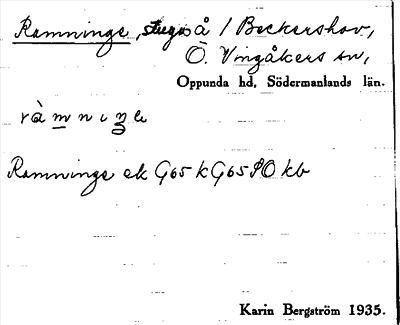 Ramninge, stuga å / Beckershov,
Ö. Vingåkers sn,
Oppunda hd, Södermanlands län.
ràmnıŋe
Ramninge ek G65 k G65 SO kb
Karin Bergström 1935.